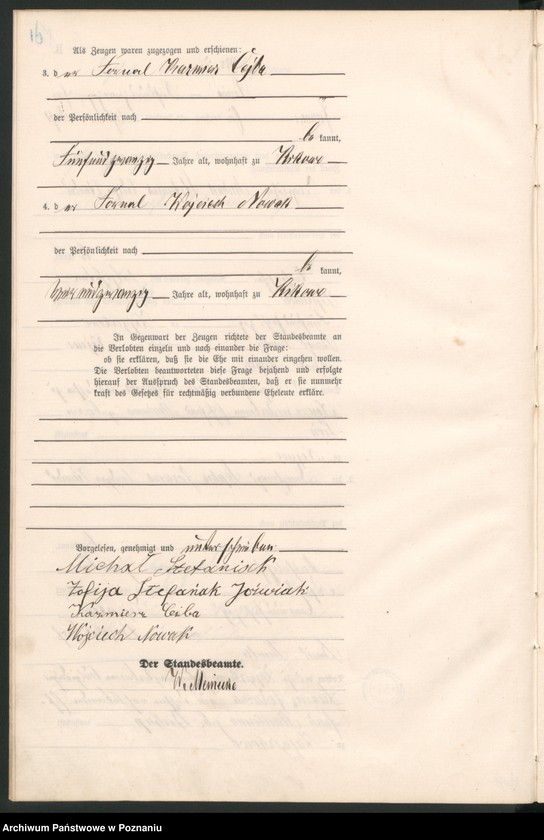 Als Zeugen waren zugezogen und erschienen:
3. der Fornal Kazmier Ciba
der Persönlichkeit nach
be kannt,
Fünfundzwanzig Jahre alt, wohnhaft zu
4. der Fornal Wojciech Nowak
der Persönlichkeit nach
be kannt,
undzwanzig Jahre alt, wohnhaft zu
In Gegenwart der Zeugen richtete der Standesbeamte an
die Verlobten einzeln und nach einander die Frage:
ob sie erklären, daß sie die Ehe mit einander eingehen wollen.
Die Verlobten beantworteten diese Frage bejahend und erfolgte
hierauf der Ausspruch des Standesbeamten, daß er sie nunmehr
kraft des Gesetzes für rechtmäßig verbundene Eheleute erkläre.
Vorgelesen, genehmigt und unterschrieben
Michal Stefaniak
Zofija Stefańak Joźwiak
Kazmierz Ciba
Wojciech Nowak
Der Standesbeamte.
Archiwum Państwowe w Poznaniu